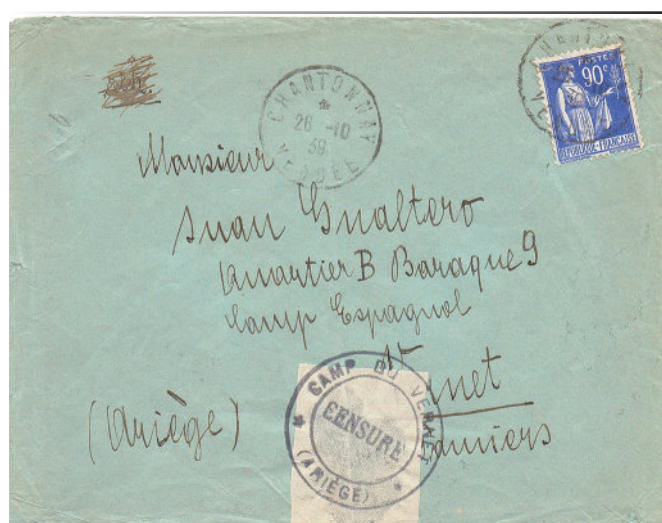 CHANTONNAY
*
26 -10
39
VENDEE
POSTES
90c
REPUBLIQUE-FRANCAISE
Monsieur
Juan Gualtero
Quartier B Baraque 9
Camp Espagnol
CAMP DU VERNET
CENSURE
(ARIÈGE)
(Ariège)